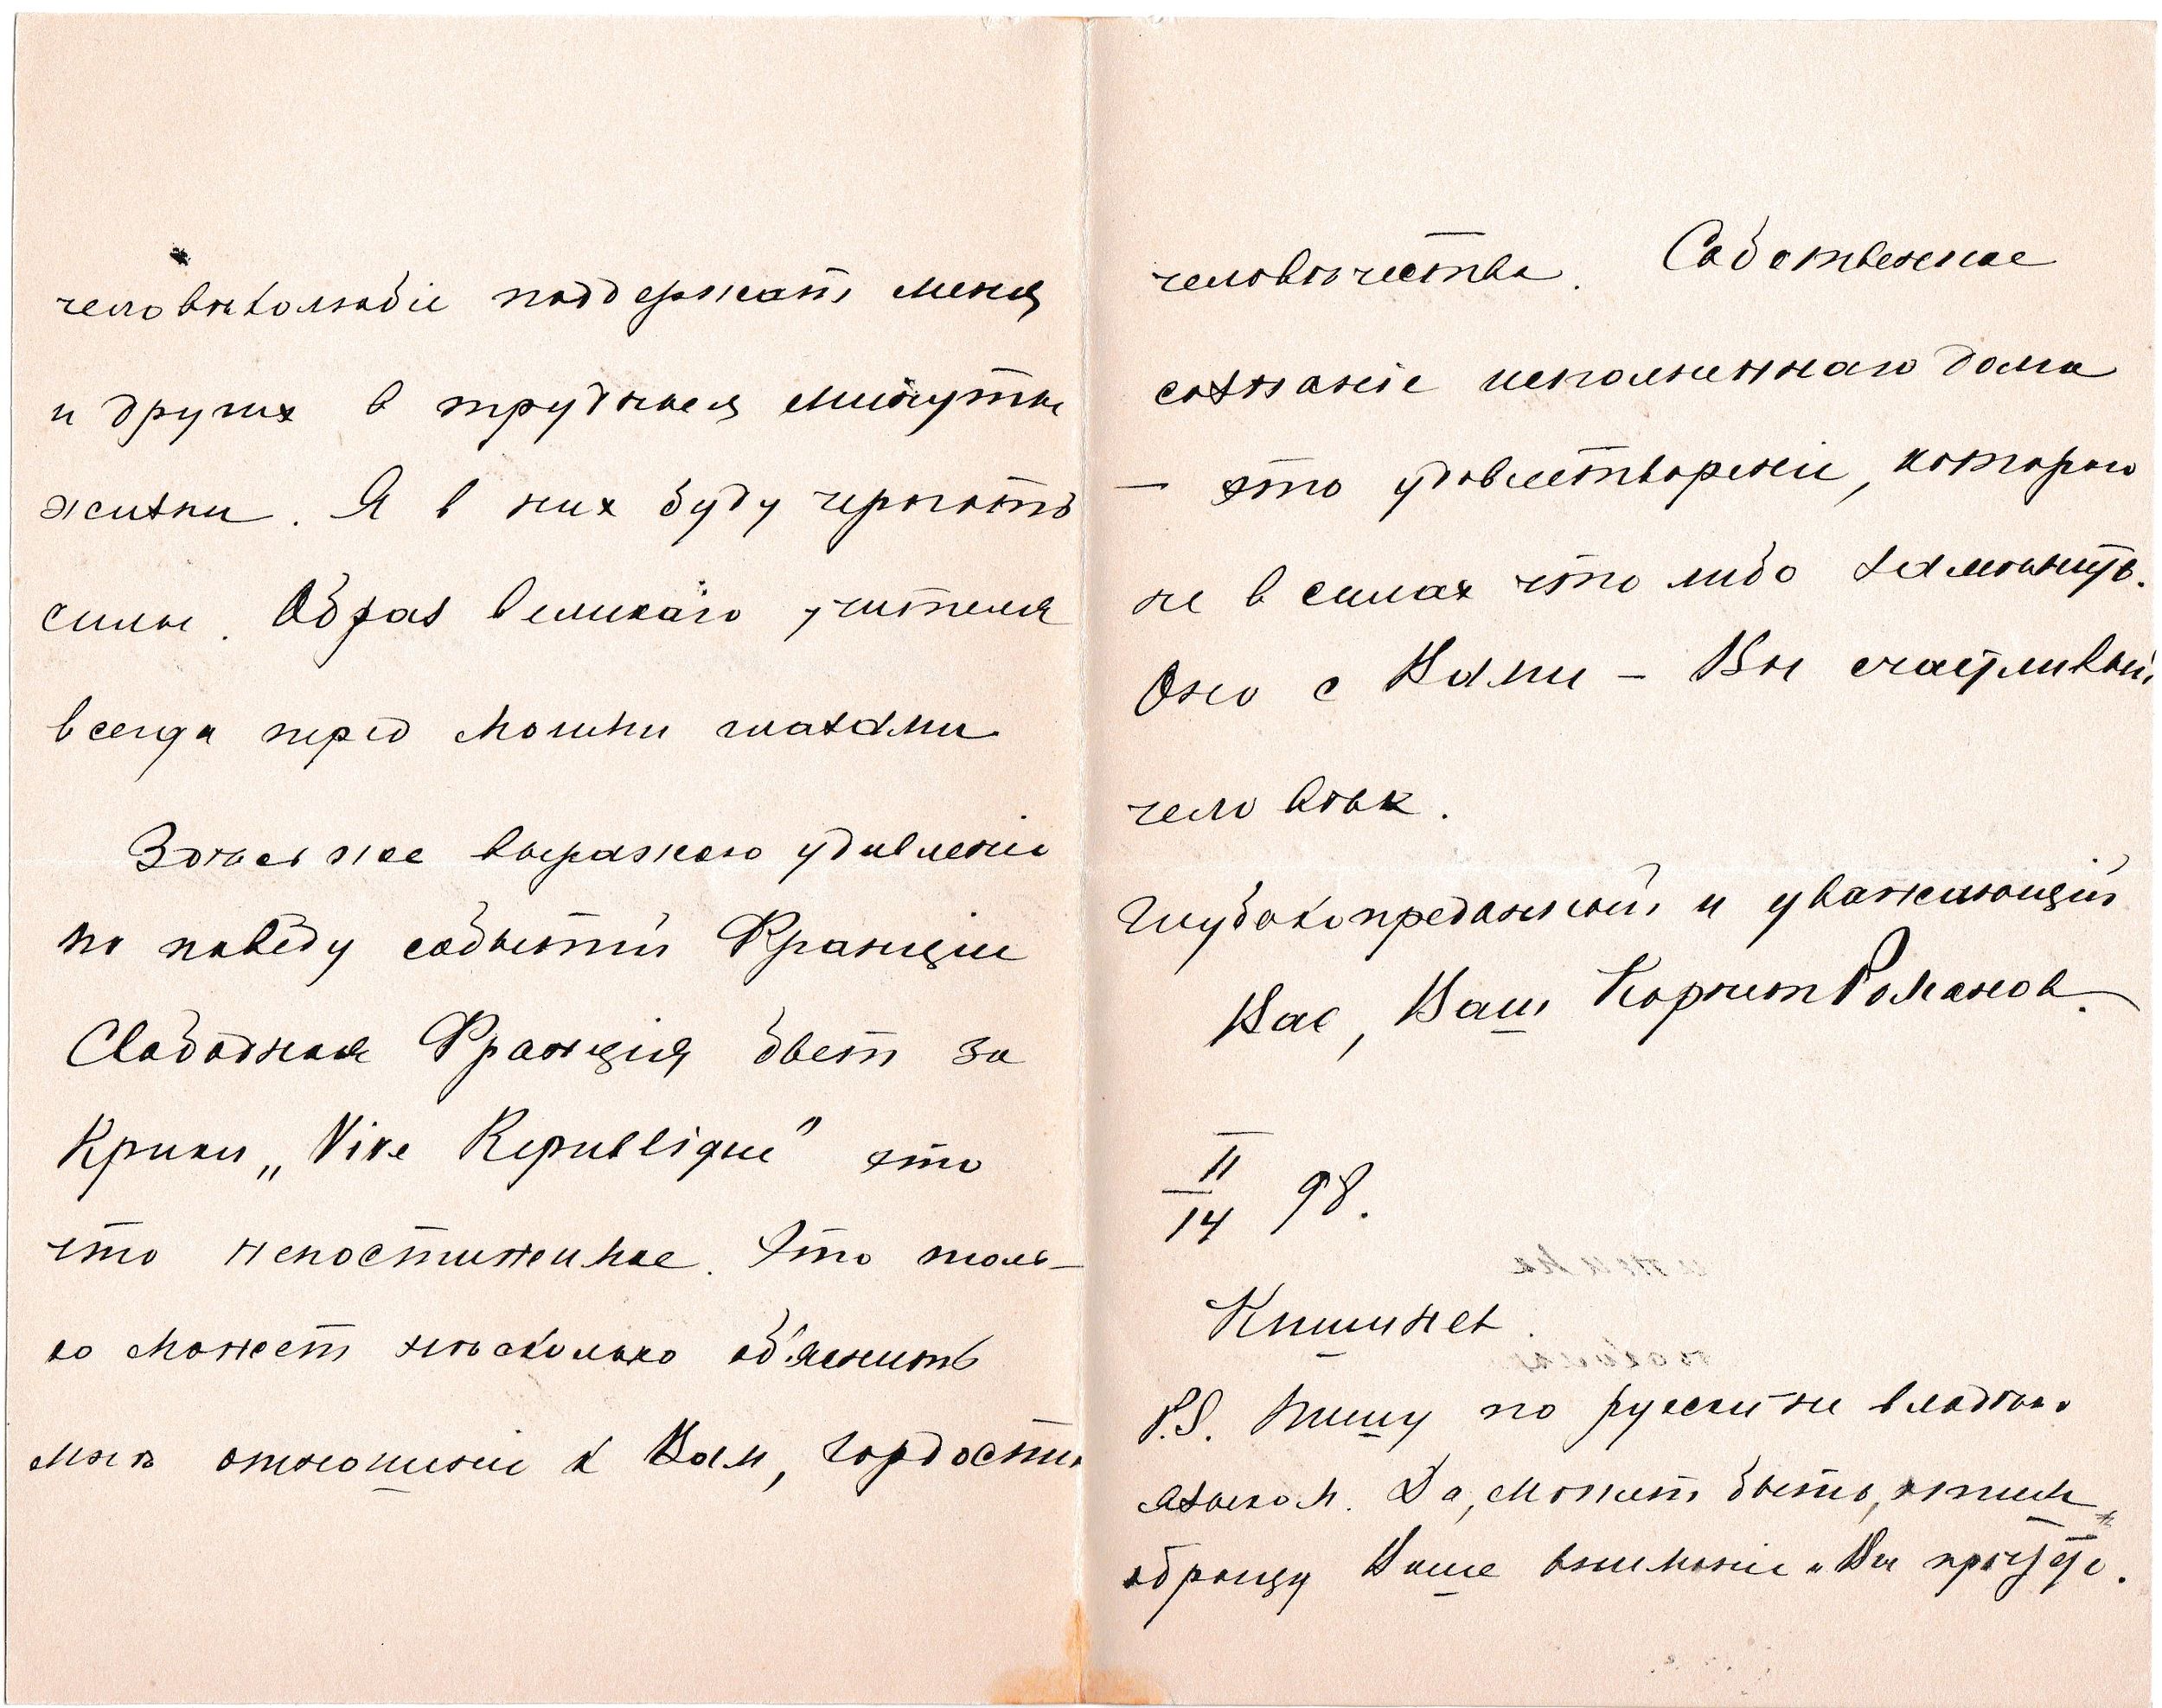 человѣколюбіе поддержат меня
и других в трудныя минуты
жизни. Я в них буду черпать
силы. Образ великаго учителя
всегда перед моими глазами
Здѣсь же выражаю удивленіе
по поводу событій Франціи
Свободная Франція бьет за
крики „Vive Republique" это
что непостижимое. Это толь-
ко может нѣсколько об'яснить
мнѣ отношеніе к Вам, гордости
человѣчества. Собственное
сознаніе исполненнаго долга
– это удовлетвореніе, котораго
не в силах что либо заменить.
Оно с Вами – Вы счастливый
человѣк.
Глубокопреданный и уважающій
Вас, Ваш Корнет Романов.
II
14 98.
Кишинев.
P.S. Пишу по русски не владѣю
языком. Да, может быть, этим
обращу Ваше вниманіе и Вы прочтете.